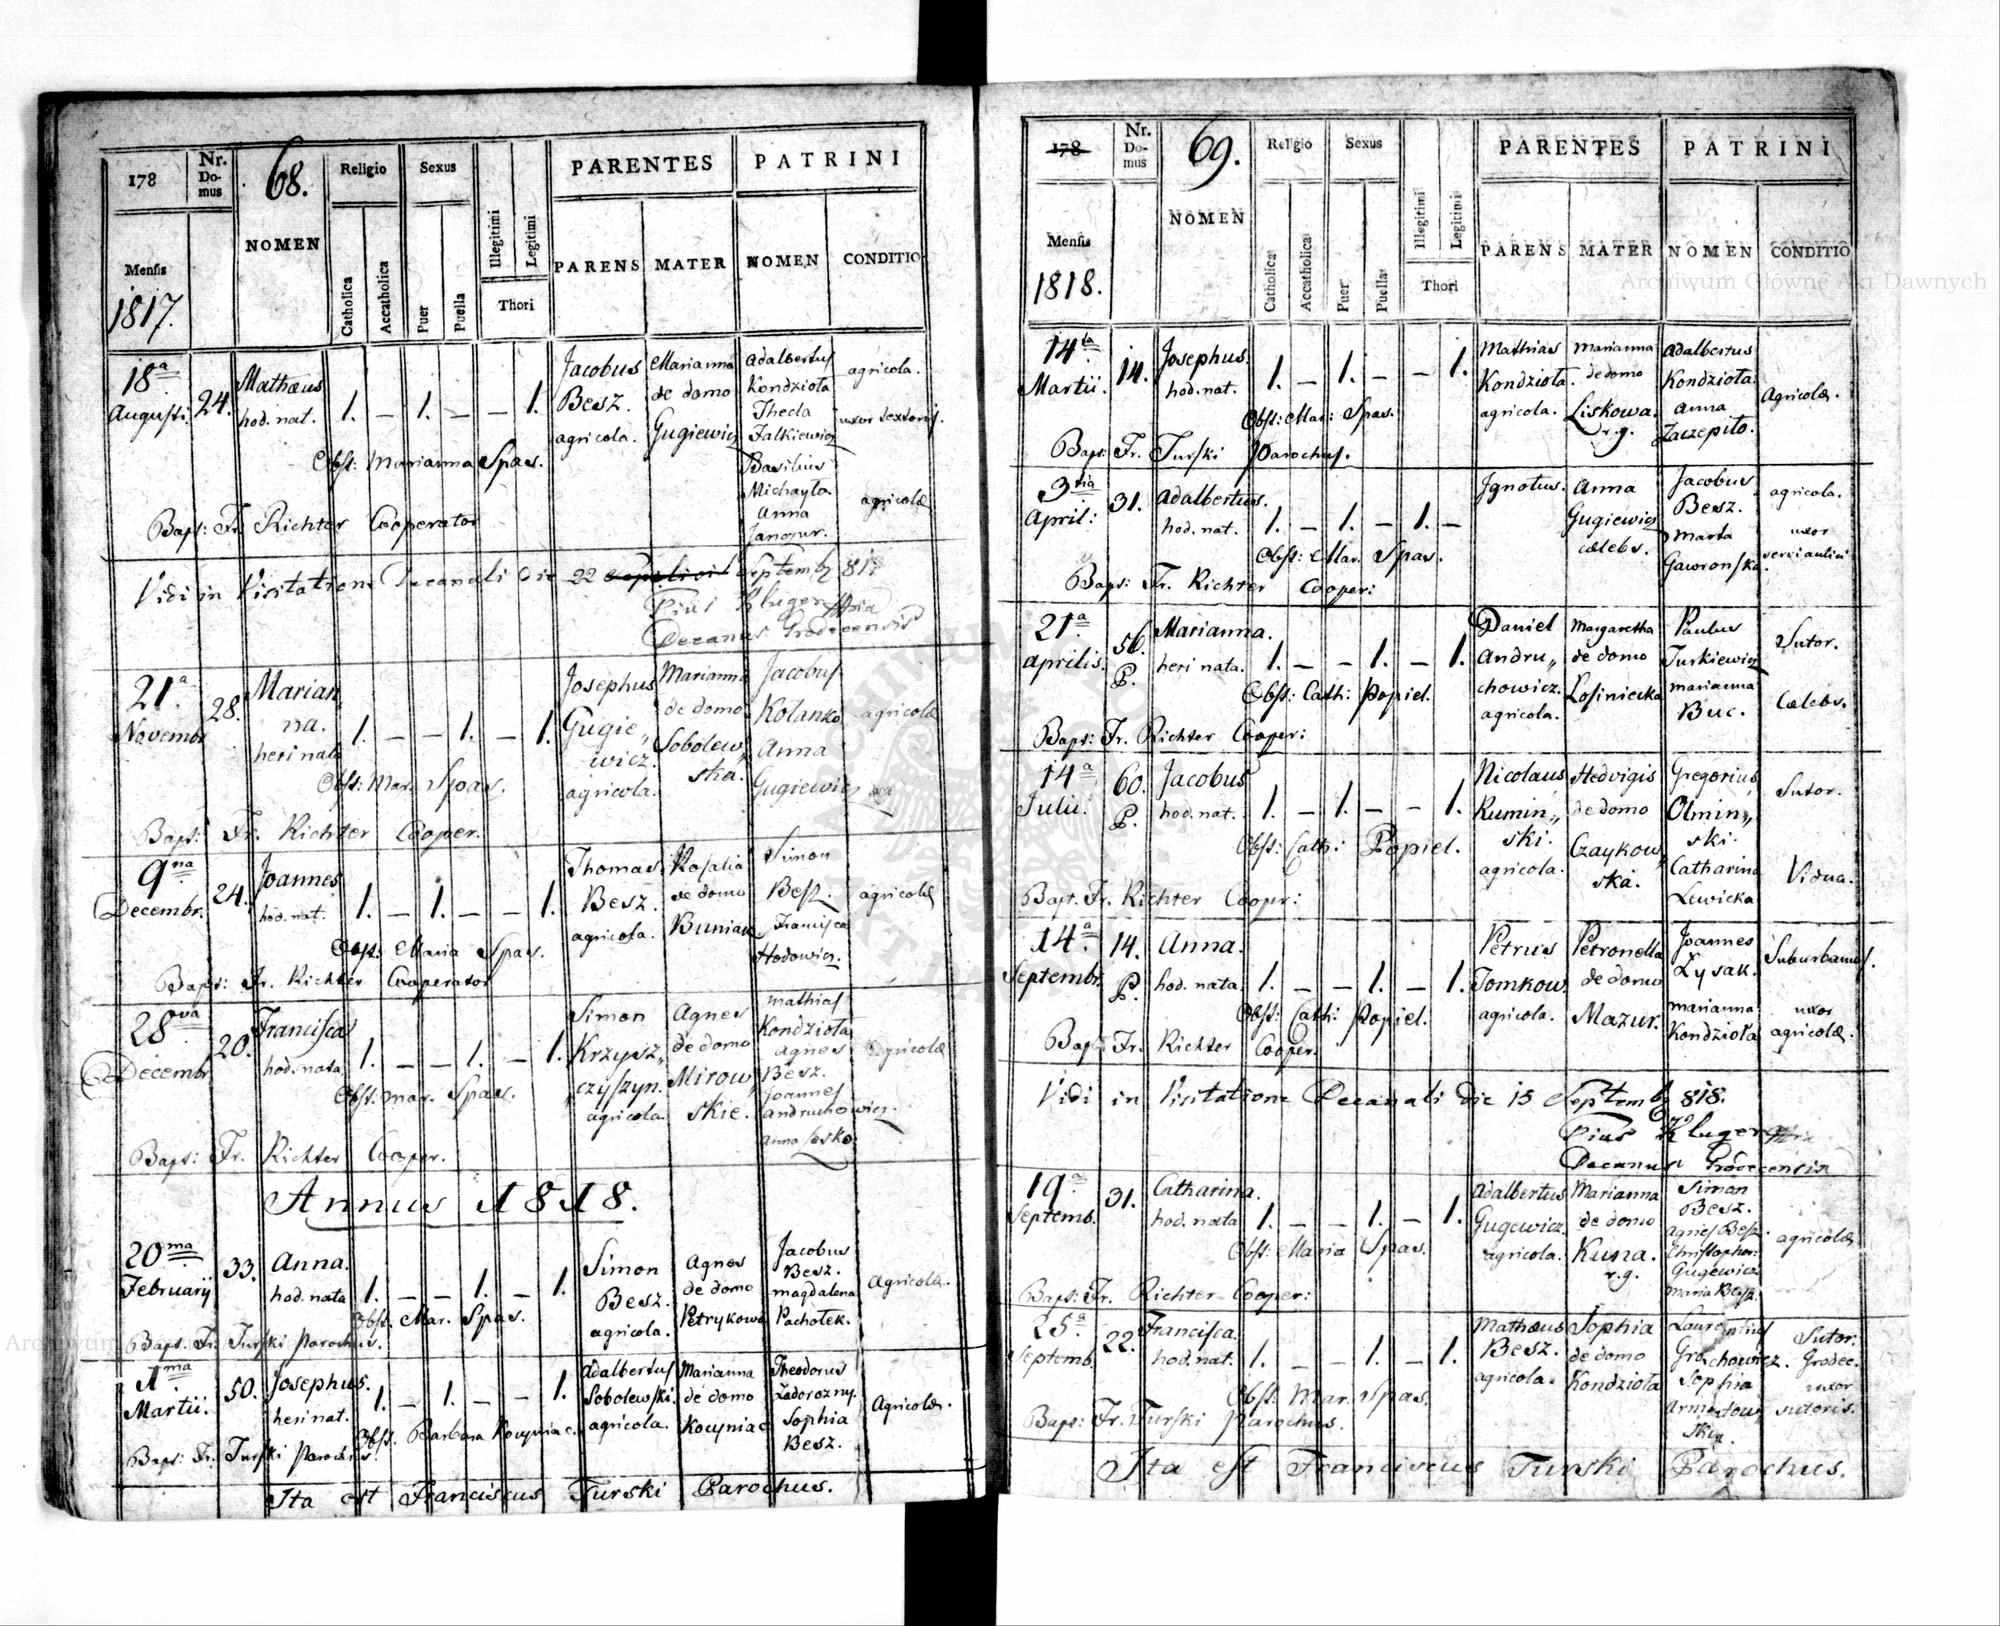 178
Nr. Do- mus
68.
Religio
Sexus
PARENTES
PATRINI
NOMEN
Illegitimi
Legitimi
PARENS
MATER
NOMEN
CONDITIO
Mensis
1817.
Catholica
Accatholica
Puer
Puella
Thori
18a Augusti.
24.
Mathæus
hod. nat.
1. – 1. – – 1.
Jacobus
Besz.
agricola.
Marianna
de domo
Gugiewicz
Adalbertus
Kondzioła
Thecla
Falkiewicz
Basilius
Michayło
Anna
agricola.
uxor textoris.
agricolæ
Obst: Marianna Spas.
Bapt: Fr. Richter Cooperator
Vidi in Visitatione Decanali Die 22 Septemb 817
Pius Kluger
Decanus Grodecensis
21a Novembr
28.
Marian„
na.
heri nata
1. – – 1. – 1.
Josephus
Gugie„
wicz.
agricola.
Marianna
de domo
Sobolew„
ska.
Jacobus
Kolanko
Anna
Gugiewicz
agricolæ
Obst: Mar. Spas.
Bapt: Fr. Richter Cooper.
9na Decembr.
24.
Joannes
hod. nat.
1. – 1. – – 1.
Thomas
Besz.
agricola.
Rosalia
de domo
Buniak
Simon
Besz.
Francisca
Hodowicz.
agricolæ
Obst: Maria Spas.
Bapt: Fr. Richter Cooperator
28ava Decembr
20.
Francisca
hod. nata
1. – – 1. – 1.
Simon
Krzysz„
czyszyn.
agricola
Agnes
de domo
Mirow„
skie.
Mathias
Kondzioła
Agnes
Besz.
Joannes
Andruchowicz.
Anna Sesko.
Agricolæ
Obst: Mar. Spas.
Bapt: Fr. Richter Cooper.
Annus 1818.
20ma Februarij
33.
Anna.
hod. nata
1. – – 1. – 1.
Simon
Besz.
agricola.
Agnes
de domo
Petrykowa
Jacobus
Besz.
Magdalena
Pachołek.
Agricolæ.
Obst. Mar. Spas.
Bapt. Fr. Turski Parochus.
1ma Martii.
50.
Josephus.
heri nat.
1. – 1. – – 1.
Adalbertus
Sobolewski.
agricola.
Marianna
de domo
Theodorus
Zadorozny.
Sophia
Besz.
Agricolæ.
Obst. Barbara
Bapt: Fr. Turski Parochus.
Ita est Franciscus Turski Parochus.
178
Nr. Do- mus
69.
Religio
Sexus
PARENTES
PATRINI
NOMEN
Illegitimi
Legitimi
PARENS
MATER
NOMEN
CONDITIO
Mensis
1818.
Catholica
Accatholica
Puer
Puella
Thori
14ta Martii.
14.
Josephus.
hod. nat.
1. – 1. – – 1.
Mathias
Kondzioła.
agricola.
Marianna
de domo
Liskowa.
r.g.
Adalbertus
Kondzioła.
Anna
Zaczepiło.
Agricolæ.
Obst: Mar: Spas.
Bapt: Fr. Turski Parochus.
3tia April:
31.
Adalbertus.
hod. nat.
1. – 1. – 1. –
Ignotus.
Anna
Gugiewicz
cælebs.
Jacobus
Besz.
Marta
Gawronska.
agricola.
uxor
servi aulici
Obst: Mar. Spas.
Bapt: Fr. Richter Cooper:
21a Aprilis.
56.
P.
Marianna.
heri nata.
1. – – 1. – 1.
Daniel
Andru„
chowicz.
agricola.
Margaretha
de domo
Losiniecka
Paulus
Turkiewicz
Marianna
Buc.
Sutor.
Cælebs.
Obst: Cath: Popiel.
Bapt: Fr. Richter Cooper:
14a Julii.
60.
P.
Jacobus
hod. nat.
1. – 1. – – 1.
Nicolaus
Rumin„
ski.
agricola.
Hedvigis
de domo
Czaykow„
ska.
Gregorius
Olmin„
ski.
Catharina
Lewicka
Sutor.
Vidua.
Obst: Cath: Popiel.
Bapt. Fr. Richter Cooper:
14a. Septembr.
14.
P.
Anna.
hod. nata
1. – – 1. – 1.
Petrus
Tomkow.
agricola.
Petronella
de domo
Mazur.
Joannes
Łysak.
Marianna
Kondzioła
Suburbanus.
uxor
agricolæ.
Obst: Cath: Popiel.
Bapt: Fr. Richter Cooper.
Vidi in Visitatione Decanali Die 15 Septemb 818.
Pius Kluger
Decanus Grodecensis
19a Septemb.
31.
Catharina.
hod. nata
1. – – 1. – 1.
Adalbertus
Gugewicz
agricola.
Marianna
de domo
Kuna.
r.g.
Simon
Besz.
Agnes Besz.
Christophor:
Gugewicz
Maria Besz.
agricolæ
Obst: Maria Spas.
Bapt: Fr. Richter Cooper:
25a Septemb.
22.
Francisca.
hod. nat.
1. – – 1. – 1.
Mathæus
Besz.
agricola.
Sophia
de domo
Kondzioła
Laurentius
Grochowicz.
Sophia
Sutor.
Grodec.
uxor
sutoris.
Obst: Mar. Spas.
Bapt: Fr. Turski Parochus.
Ita est Franciscus Turski Parochus.
Archiwum Główne Akt Dawnych